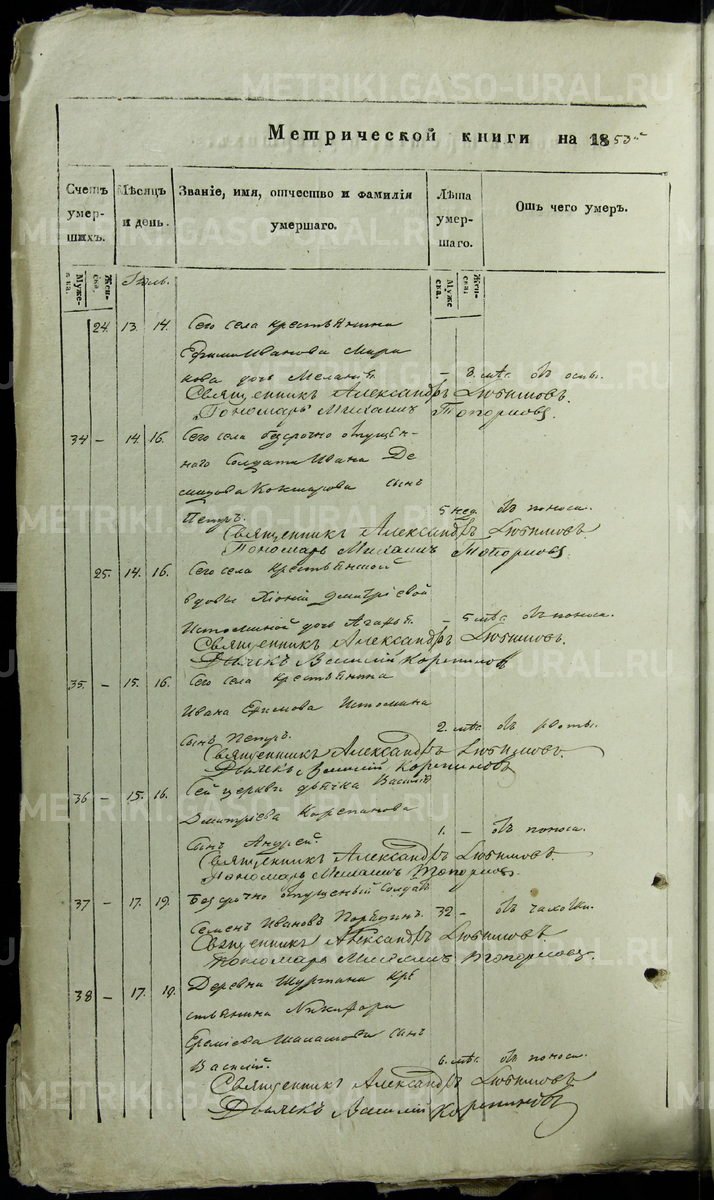 METRIKI.GASO-URAL.RU
Метрической книги на 1850й
Счетъ умер-шихъ.
Мѣсяцъ и день.
Званіе, имя, отчество и фамилія умершаго.
Лѣта умер-шаго.
Отъ чего умеръ.
Муже-ска.
Жен-ска.
Іюль.
Муже-ска.
Жен-ска.
24. 13. 14. Сего села крестьянина
Ефима Иванова
дочь Меланія. – 3. мѣс. отъ оспы.
Священникъ Александръ Любимовъ.
Пономарь Михаилъ Топорковъ.
34 – 14 16. Сего села безсрочно отпущен-
наго Солдата Ивана Де-
мидова Кокшарова сынъ
Петръ. 5 нед. отъ поноса.
Священникъ Александръ Любимовъ.
Пономарь Михаилъ Топорковъ
25. 14. 16. Сего села крестьянской
вдовы Хіоніи Дмитріевой
Истоминой дочь Агафья. – 5 мѣс. отъ поноса.
Священникъ Александръ Любимовъ.
Дьячекъ Василій Корепановъ
35. – 15. 16. Сего села крестьянина
Ивана Ефимова Истомина
сынъ Петръ. 2. мѣс. отъ рвоты.
Священникъ Александръ Любимовъ.
Дьячекъ Василій Корепановъ
36 – 15. 16. Сей церкви дьячка Василія
Дмитріева Корепанова
сынъ Андрей. 1. – отъ поноса.
Священникъ Александръ Любимовъ.
Пономарь Михаилъ Топорковъ.
37 – 17. 19. Безсрочно отпущеный Солдатъ
Семенъ Ивановъ 32 – отъ чахотки.
Священникъ Александръ Любимовъ.
Пономарь Михаилъ Топорковъ.
38 – 17. 19. Деревни кре
стьянина Никифора
Еремѣева сынъ
Василій. 6. мѣс. отъ поноса.
Священникъ Александръ Любимовъ
Дьячекъ Василій Корепановъ